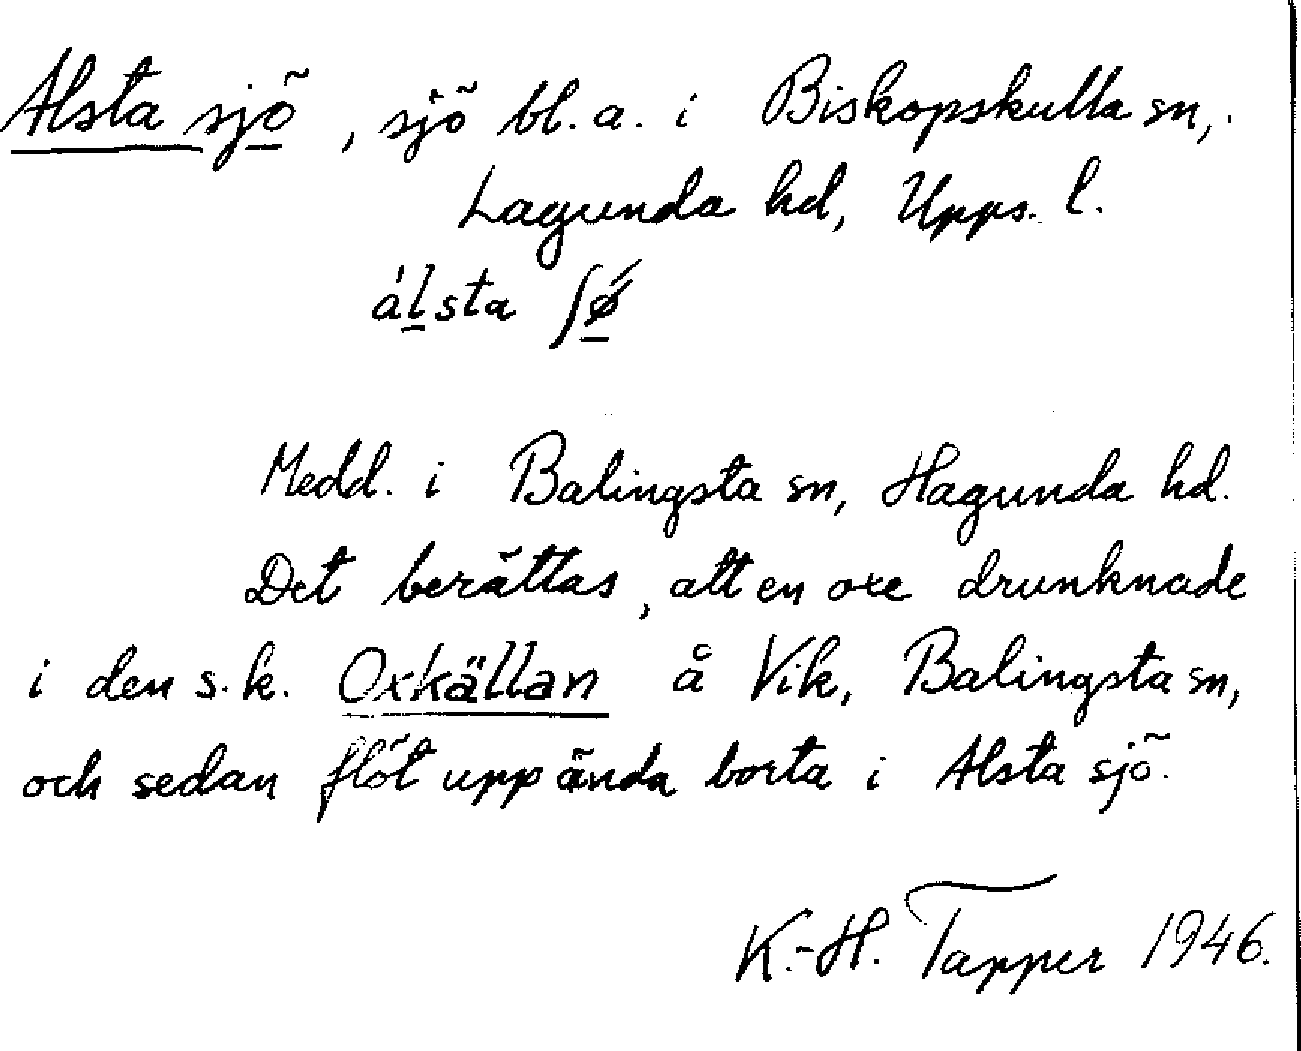 Alsta sjö, sjö bl.a. i Biskopskulla sn,
Lagunda hd, Upps. l.
álsta ʃø̋
Medd. i Balingsta sn, Hagunda hd.
Det berättas, att en oxe drunknade
i den s.k. Oxkällan å Vik, Balingsta sn,
och sedan flöt upp ända borta i Alsta sjö.
K.-H. Tapper 1946.